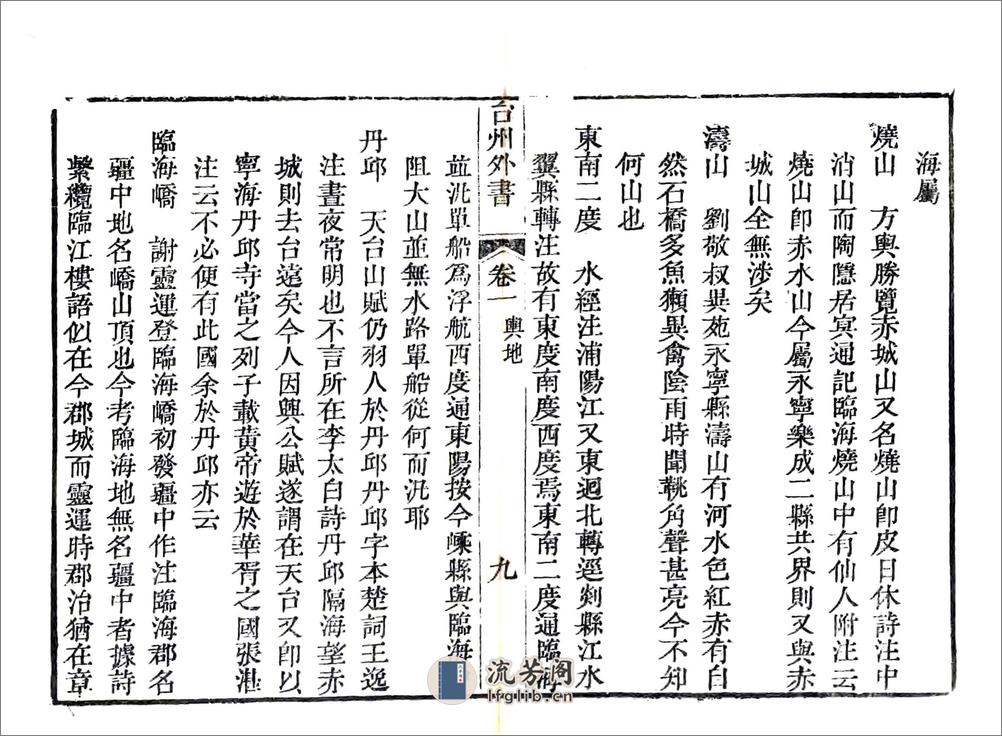 海屬
燒山　方輿勝覽赤城山又名燒山卽皮日休詩注中
消山而陶隱居冥通記臨海燒山中有仙人附注云
燒山卽赤水山今屬永寧樂成二縣共界則又與赤
城山全無涉矣
濤山　劉敬叔異苑永寧縣濤山有河水色紅赤有自
然石橋多魚獺異禽陰雨時聞鞉角聲甚亮今不知
何山也
東南二度　水經注浦陽江又東迴北轉逕剡縣江水
翼縣轉注故有東度南度西度焉東南二度通臨海
台州外書
卷一
輿地
九
並汎單船爲浮航西度通東陽按今嵊縣與臨海
阻大山並無水路單船從何而汎耶
丹邱　天台山賦仍羽人於丹邱丹邱字本楚詞王逸
注晝夜常明也不言所在李太白詩丹邱隔海望赤
城則去台遠矣今人因興公賦遂謂在天台又卽以
寧海丹邱寺當之列子載黄帝遊於華胥之國張湛
注云不必便有此國余於丹邱亦云
臨海嶠　謝靈運登臨海嶠初發疆中作注臨海郡名
疆中地名嶠山頂也今考臨海地無名疆中者據詩
繫纜臨江樓語似在今郡城而靈運時郡治猶在章
流芳阁
lfglib.cn